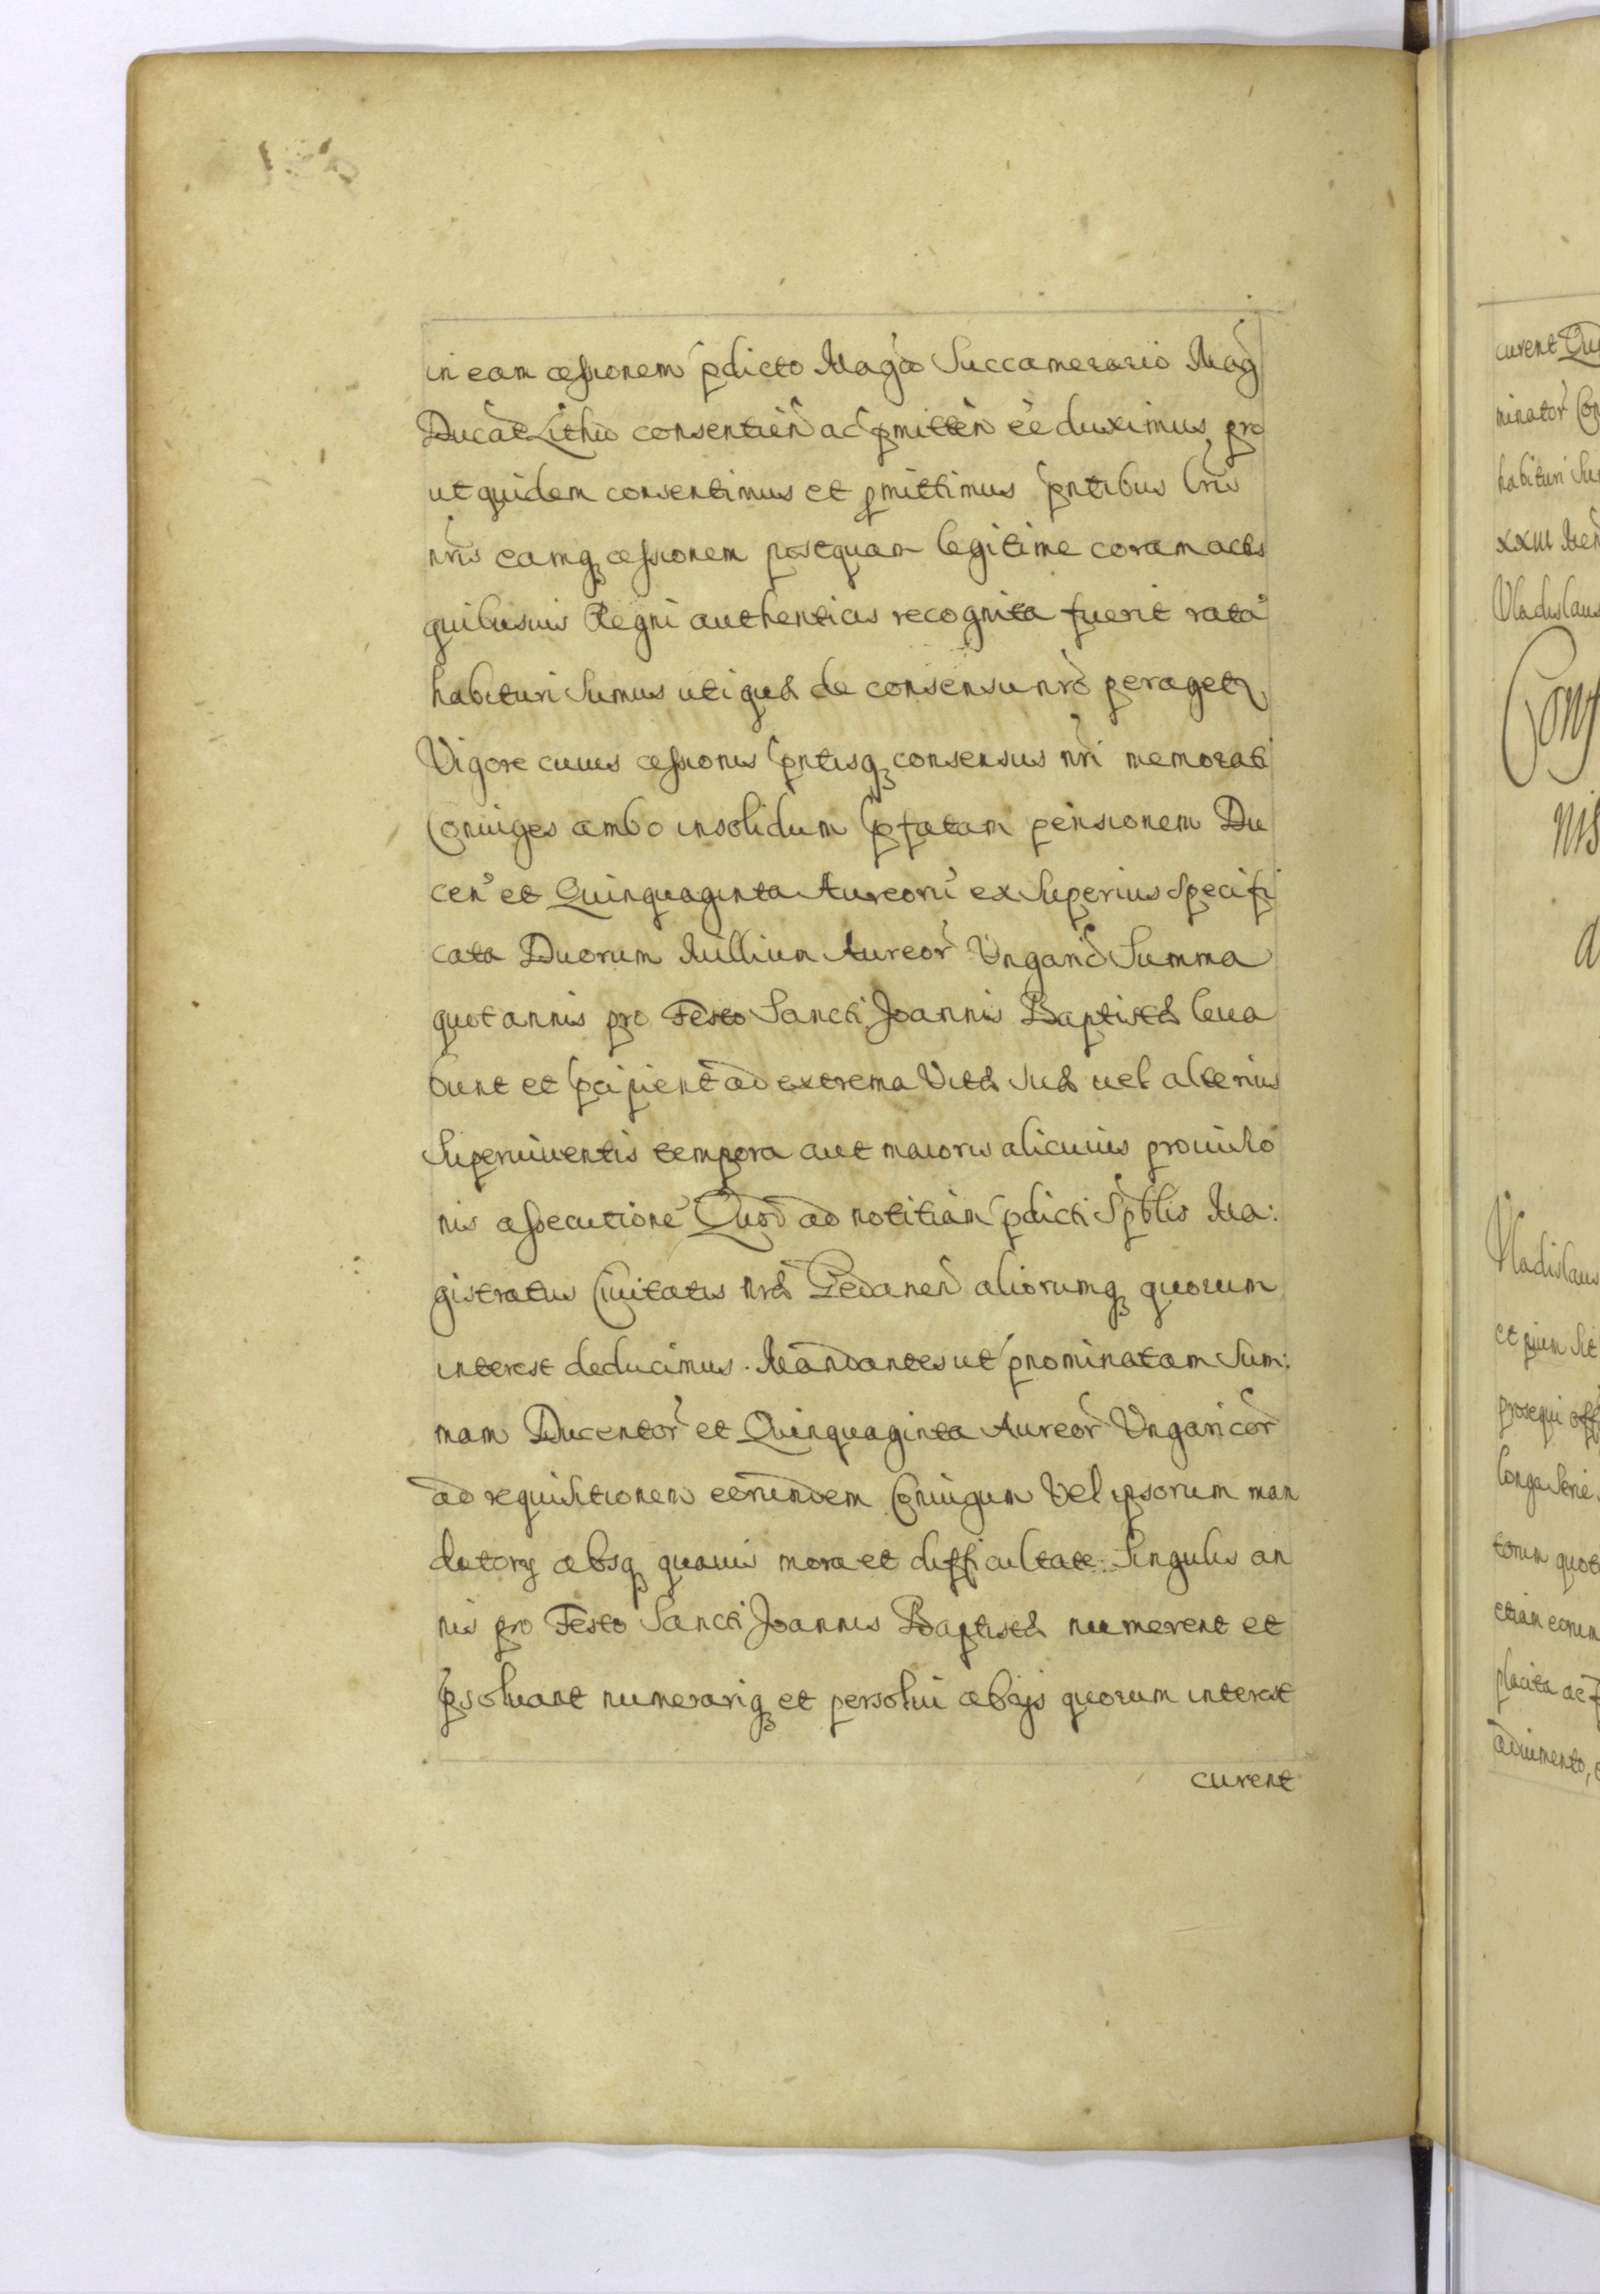 in eam cessionem pdicto Magco Succamerario Mag
Ducat Lithu consentien ac pmitten ee duximus, pro
ut quidem consentimus et pmittimus pntibus lris
nris eamq cessionem postquam legitime coram actis
quibusuis Regni authenticis recognita fuerit rata
habituri sumus uti quæ de consensu nro peraget
Vigore cuius cessionis pntisq consensus nri memorati
Coniuges ambo insolidum pfatam pensionem Du
cen et Quinquaginta Aureoru ex superius specifi
cata Duorum Millium Aureor Ungaric Summa
quotannis pro Festo Sancti Joannis Baptistæ leua
bunt et pcipient ad extrema Vitæ suæ uel alterius
superuiuentis tempora aut maioris alicuius prouisio
nis assecutione Quod ad notitiam pdicti Spblis Ma:
gistratus Ciuitatis nræ Gedanen aliorumq quorum
interest deducimus. Mandantes ut pnominatam Sum:
mam Ducentor et Quinquaginta Aureor Ungaricor
ad requisitionem eorundem Coniugum Vel ipsorum man
datorq absq quauis mora et difficultate singulis an
nis pro Festo Sancti Joannis Baptistæ numerent et
psoluant numerariq et persolui ab ijs quorum interest
curent
curent
minator
habituri
XXIII
Vladislaus
nis
Vladislaus
et pium sit
prosequi
longa serie
torum
etiam eorum
placita ac
adiumento,